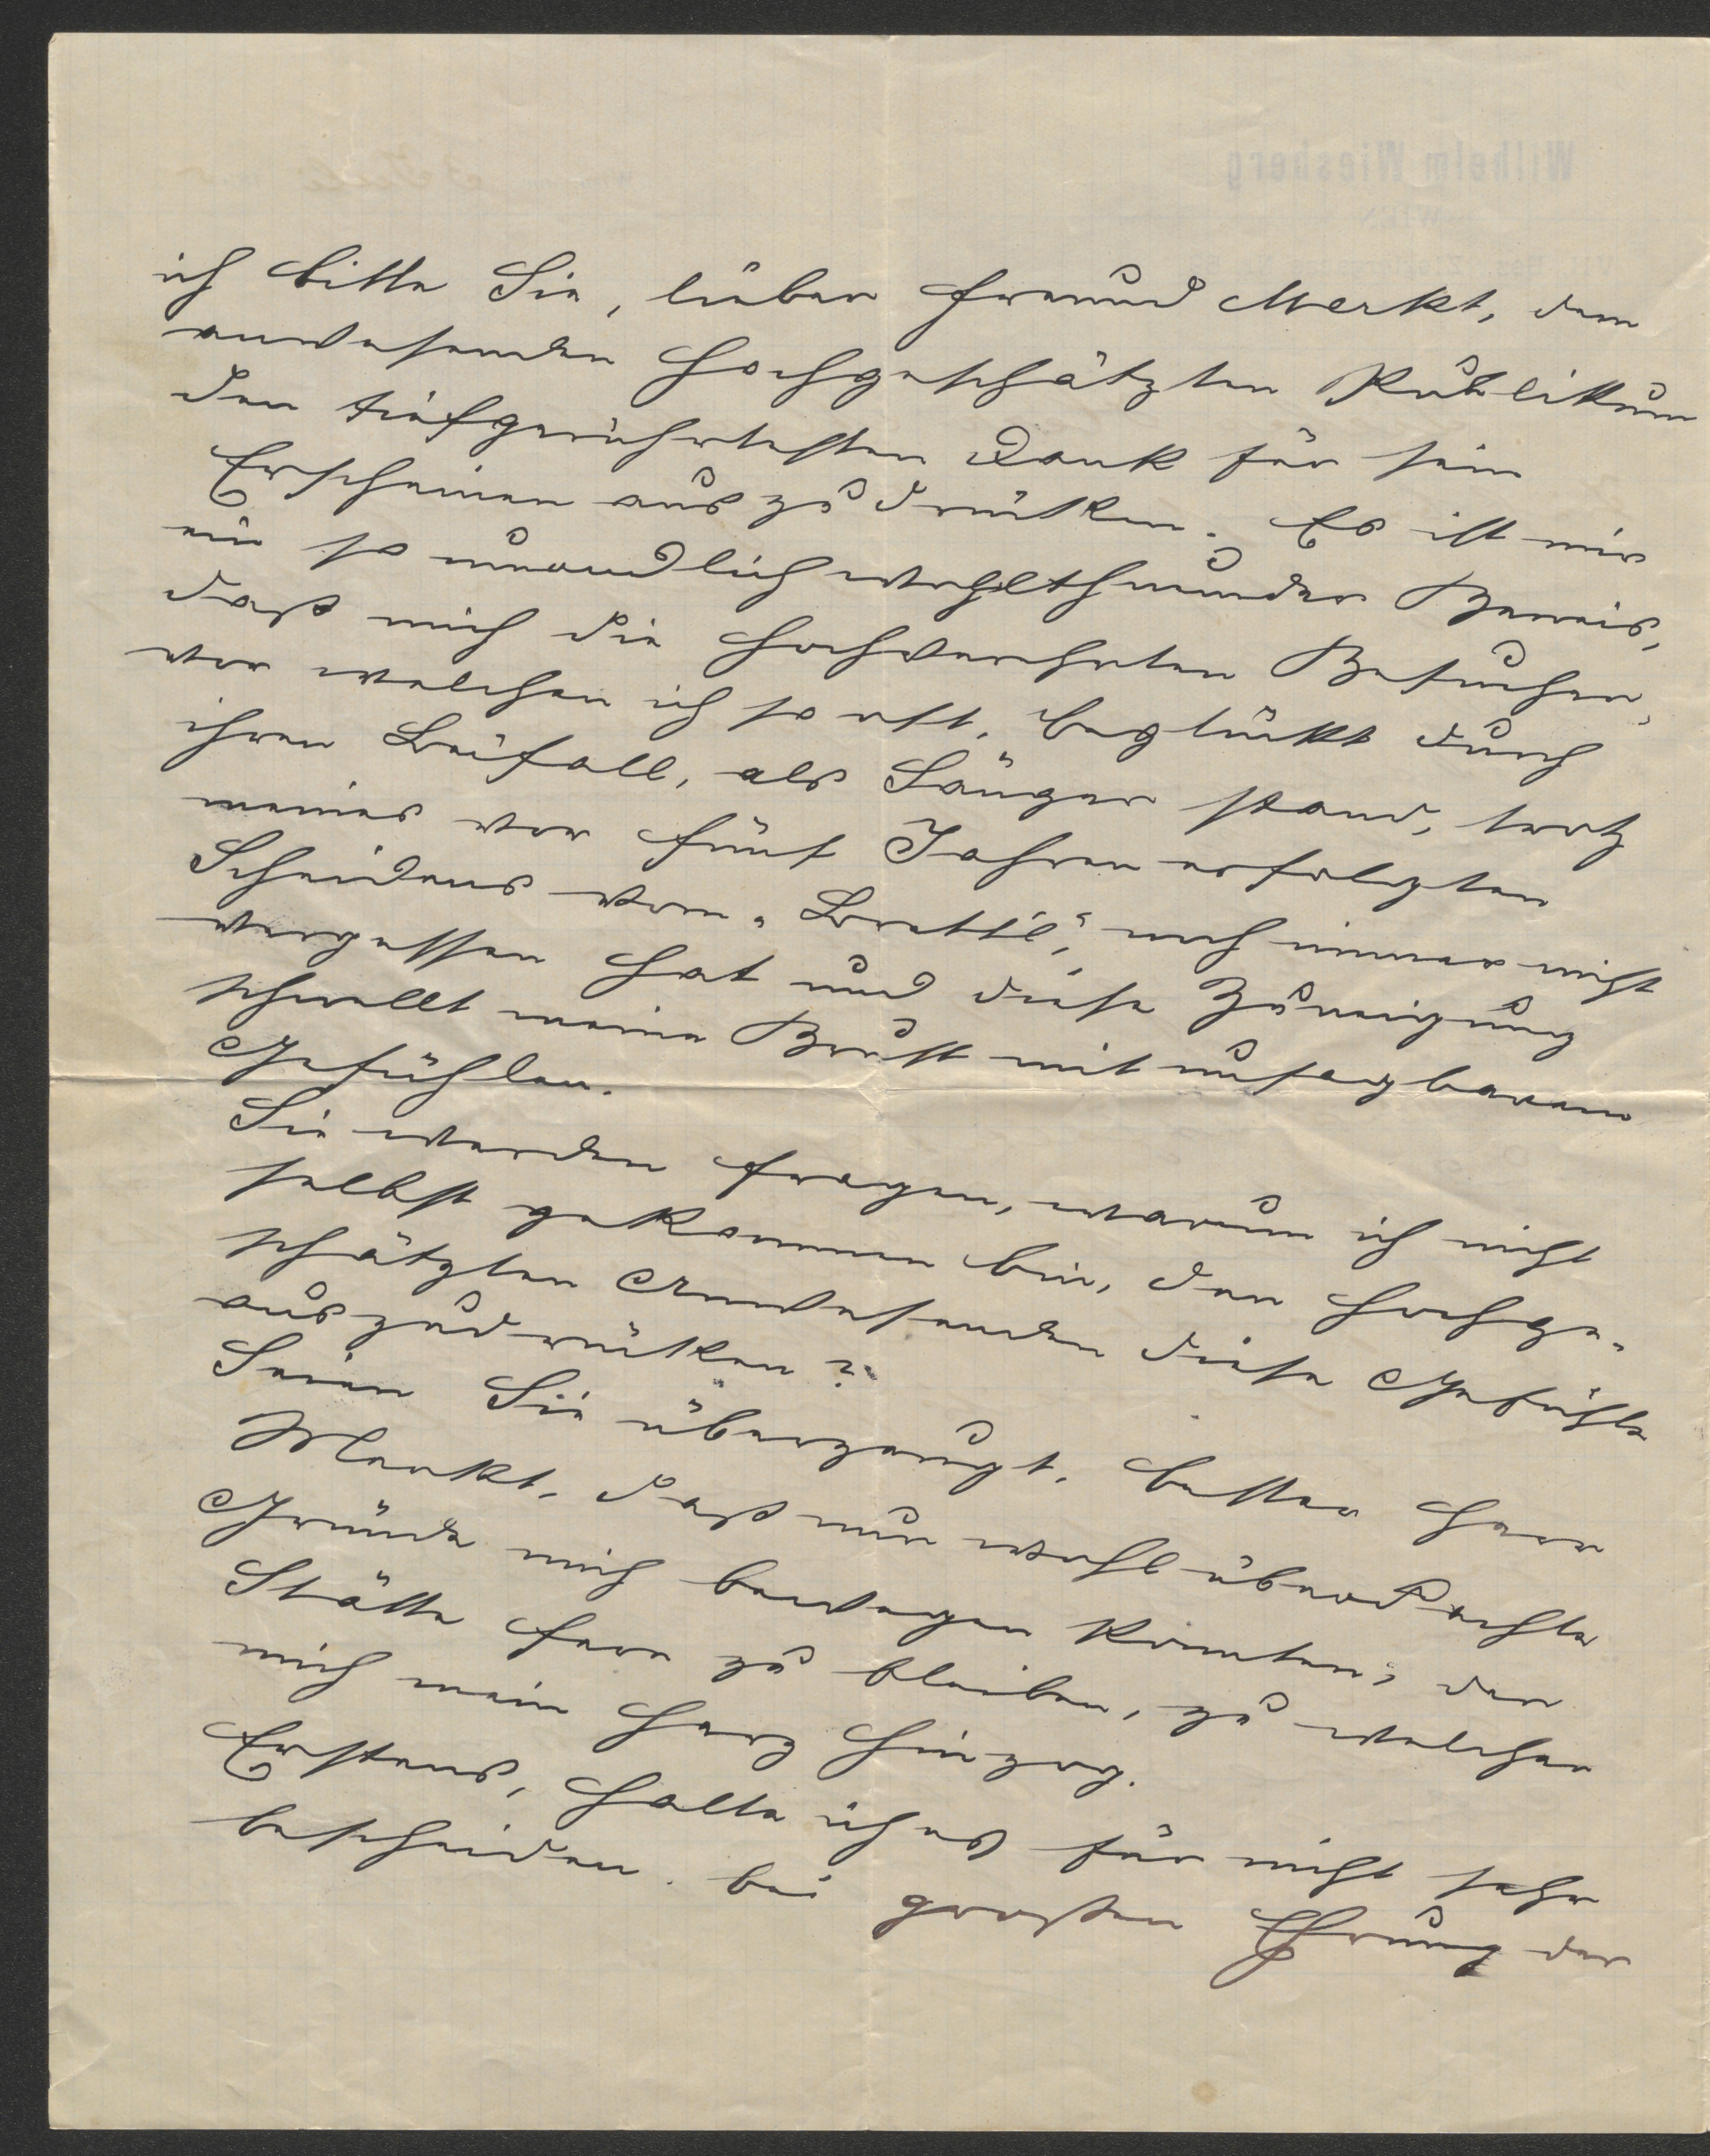 Wilhelm Wiesberg
WIEN
ich bitte Sie, lieber Freund Merkt, dem
anwesenden hochgeschätzten Publikum
den tiefgerührtesten Dank für sein
Erscheinen auszudrücken. Es ist mir
ein so unendlich wohlthuender Beweis,
daß mich die hochverehrten Besucher,
vor welchen ich so oft, beglückt durch
ihren Beifall, als Sänger stand, trotz
meines vor fünf Jahren erfolgten
Scheidens vom „Brettl", noch immer nicht
vergessen hat und diese Zuneigung
schwellt meine Brust mit unsagbaren
Gefühlen.
Sie werden fragen, warum ich nicht
selbst gekommen bin, den hochge-
schätzten Anwesenden diese Gefühle
auszudrücken?
Seien Sie überzeugt, bester Herr
Merkt, daß nur wohl überdachte
Gründe mich bewegen konnten, der
Stätte fern zu bleiben, zu welcher
mich mein Herz hinzog.
Erstens, halte ich es für nicht sehr
bescheiden bei großen Ehrung der